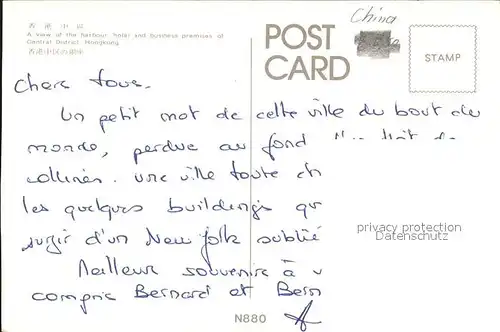 香港中區
A view of the harbour, hotel and business premises of
Central District Hongkong
香港中区の銀座
POST
CARD
China
STAMP
Chers tous,
Un petit mot de cette ville du bout du
monde, perdue au fond
collines. une ville toute
les quelques buildings
surgir d'un New York oublié
Meilleurs souvenirs à v
compris Bernard et Bern
privacy protection
Datenschutz
N880